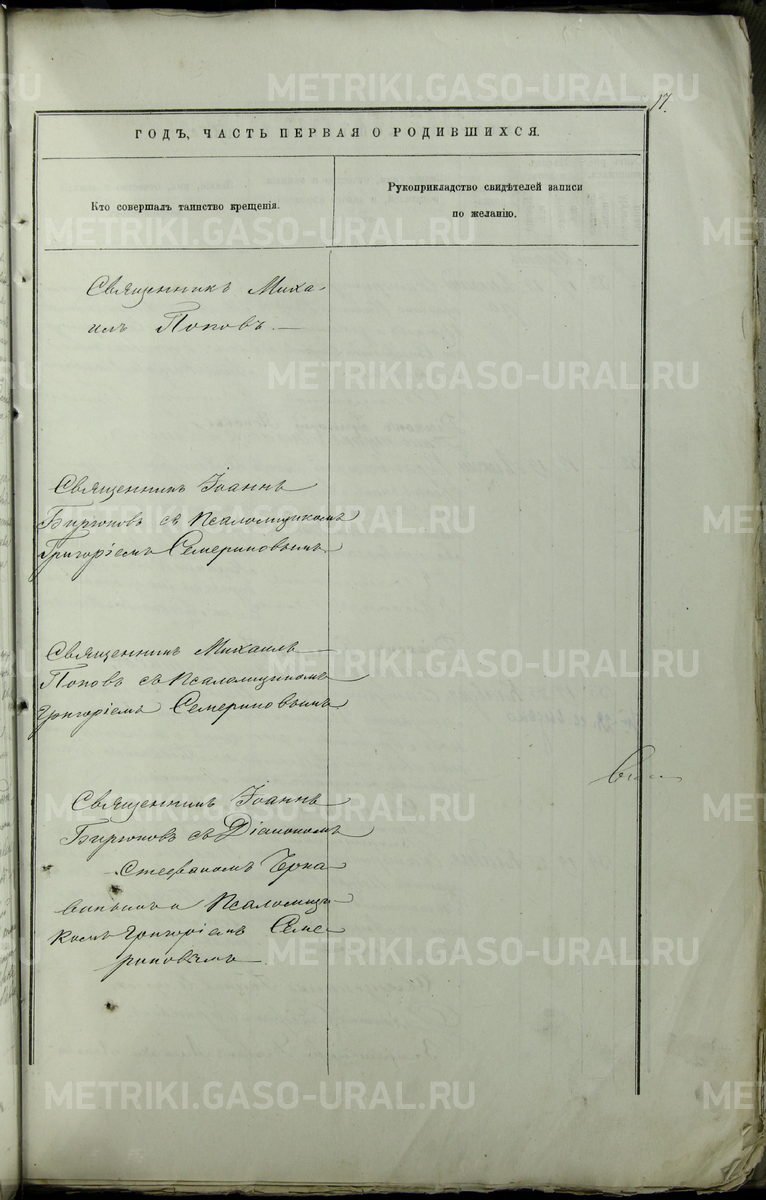 17.
ГОДЪ, ЧАСТЬ ПЕРВАЯ О РОДИВШИХСЯ.
Кто совершалъ таинство крещенія.
Рукоприкладство свидѣтелей записи
по желанію.
Священникъ Миха-
илъ Поповъ.—
Священникъ Іоаннъ
Бирюковъ съ Псаломщикомъ
Григоріемъ Семериковымъ
Священникъ Михаилъ
Поповъ съ Псаломщикомъ
Григоріемъ Семериковымъ
Священникъ Іоаннъ
Бирюковъ съ Діакономъ
Стефаномъ
и Псаломщи-
комъ Григоріемъ Семе-
риковымъ
METRIKI.GASO-URAL.RU